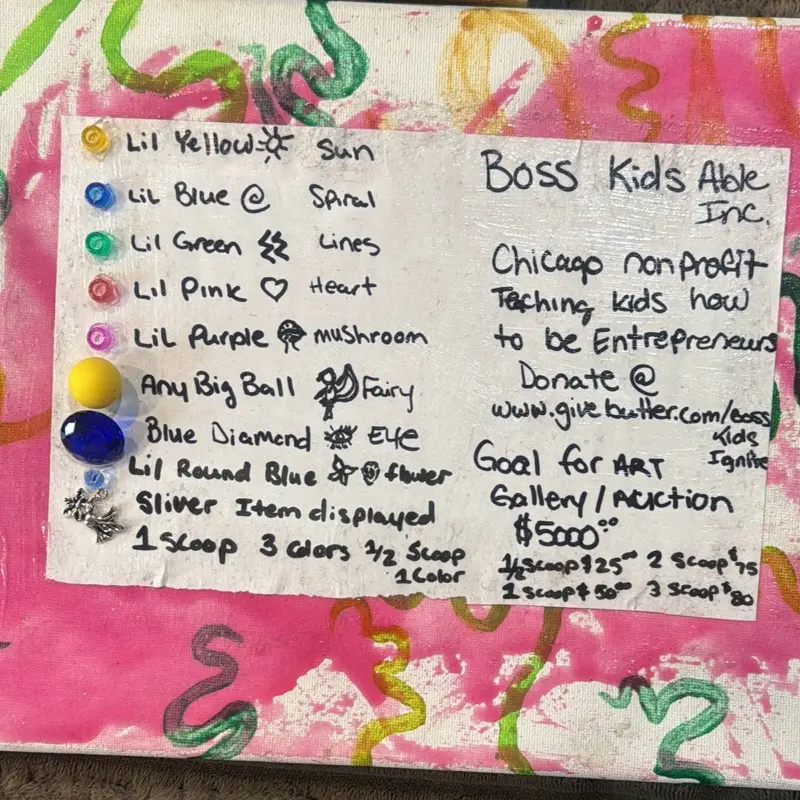 Lil Yellow Sun
Lil Blue Spiral
Lil Green Lines
Lil Pink Heart
Lil Purple mushroom
Any Big Ball Fairy
Blue Diamond Eye
Lil Round Blue flower
Sliver Item displayed
1 Scoop 3 Colors 1/2 Scoop
1 Color
Boss Kids Able
Inc.
Chicago nonprofit
Teaching kids how
to be Entrepreneurs
Donate @
www.givebutter.com/boss
Kids
Ignite
Goal for ART
Gallery/Auction
$5000.00
1/2 Scoop $25.00 2 Scoop $75
1 Scoop $50.00 3 Scoop $80